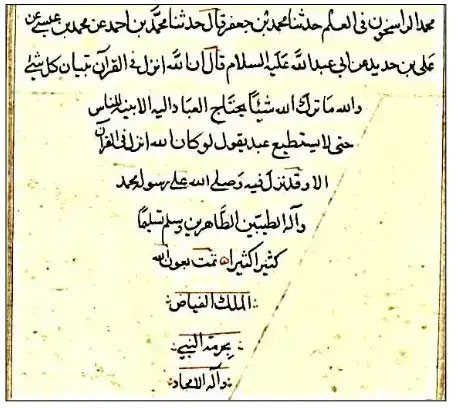 محمد الراسخون فى العلم حدثنا محمد بن جعفر قال حدثنا محمد بن احمد عن محمد بن عيسى عن
على بن حديد عن ابى عبد الله عليه السلام قال ان الله انزل فى القرآن تبيان كل شئ
والله ما ترك الله شيئا يحتاج العباد اليه الا بينه للناس
حتى لا يستطيع عبد يقول لو كان الله انزل فى القرآن
الا وقد نزل فيه وصلى الله على رسوله محمد
وآله الطيبين الطاهرين وسلم تسليما
كثيرا كثيرا تمت بعون الله
الملك الفياض
بحرمة النبى
وآله الامجاد